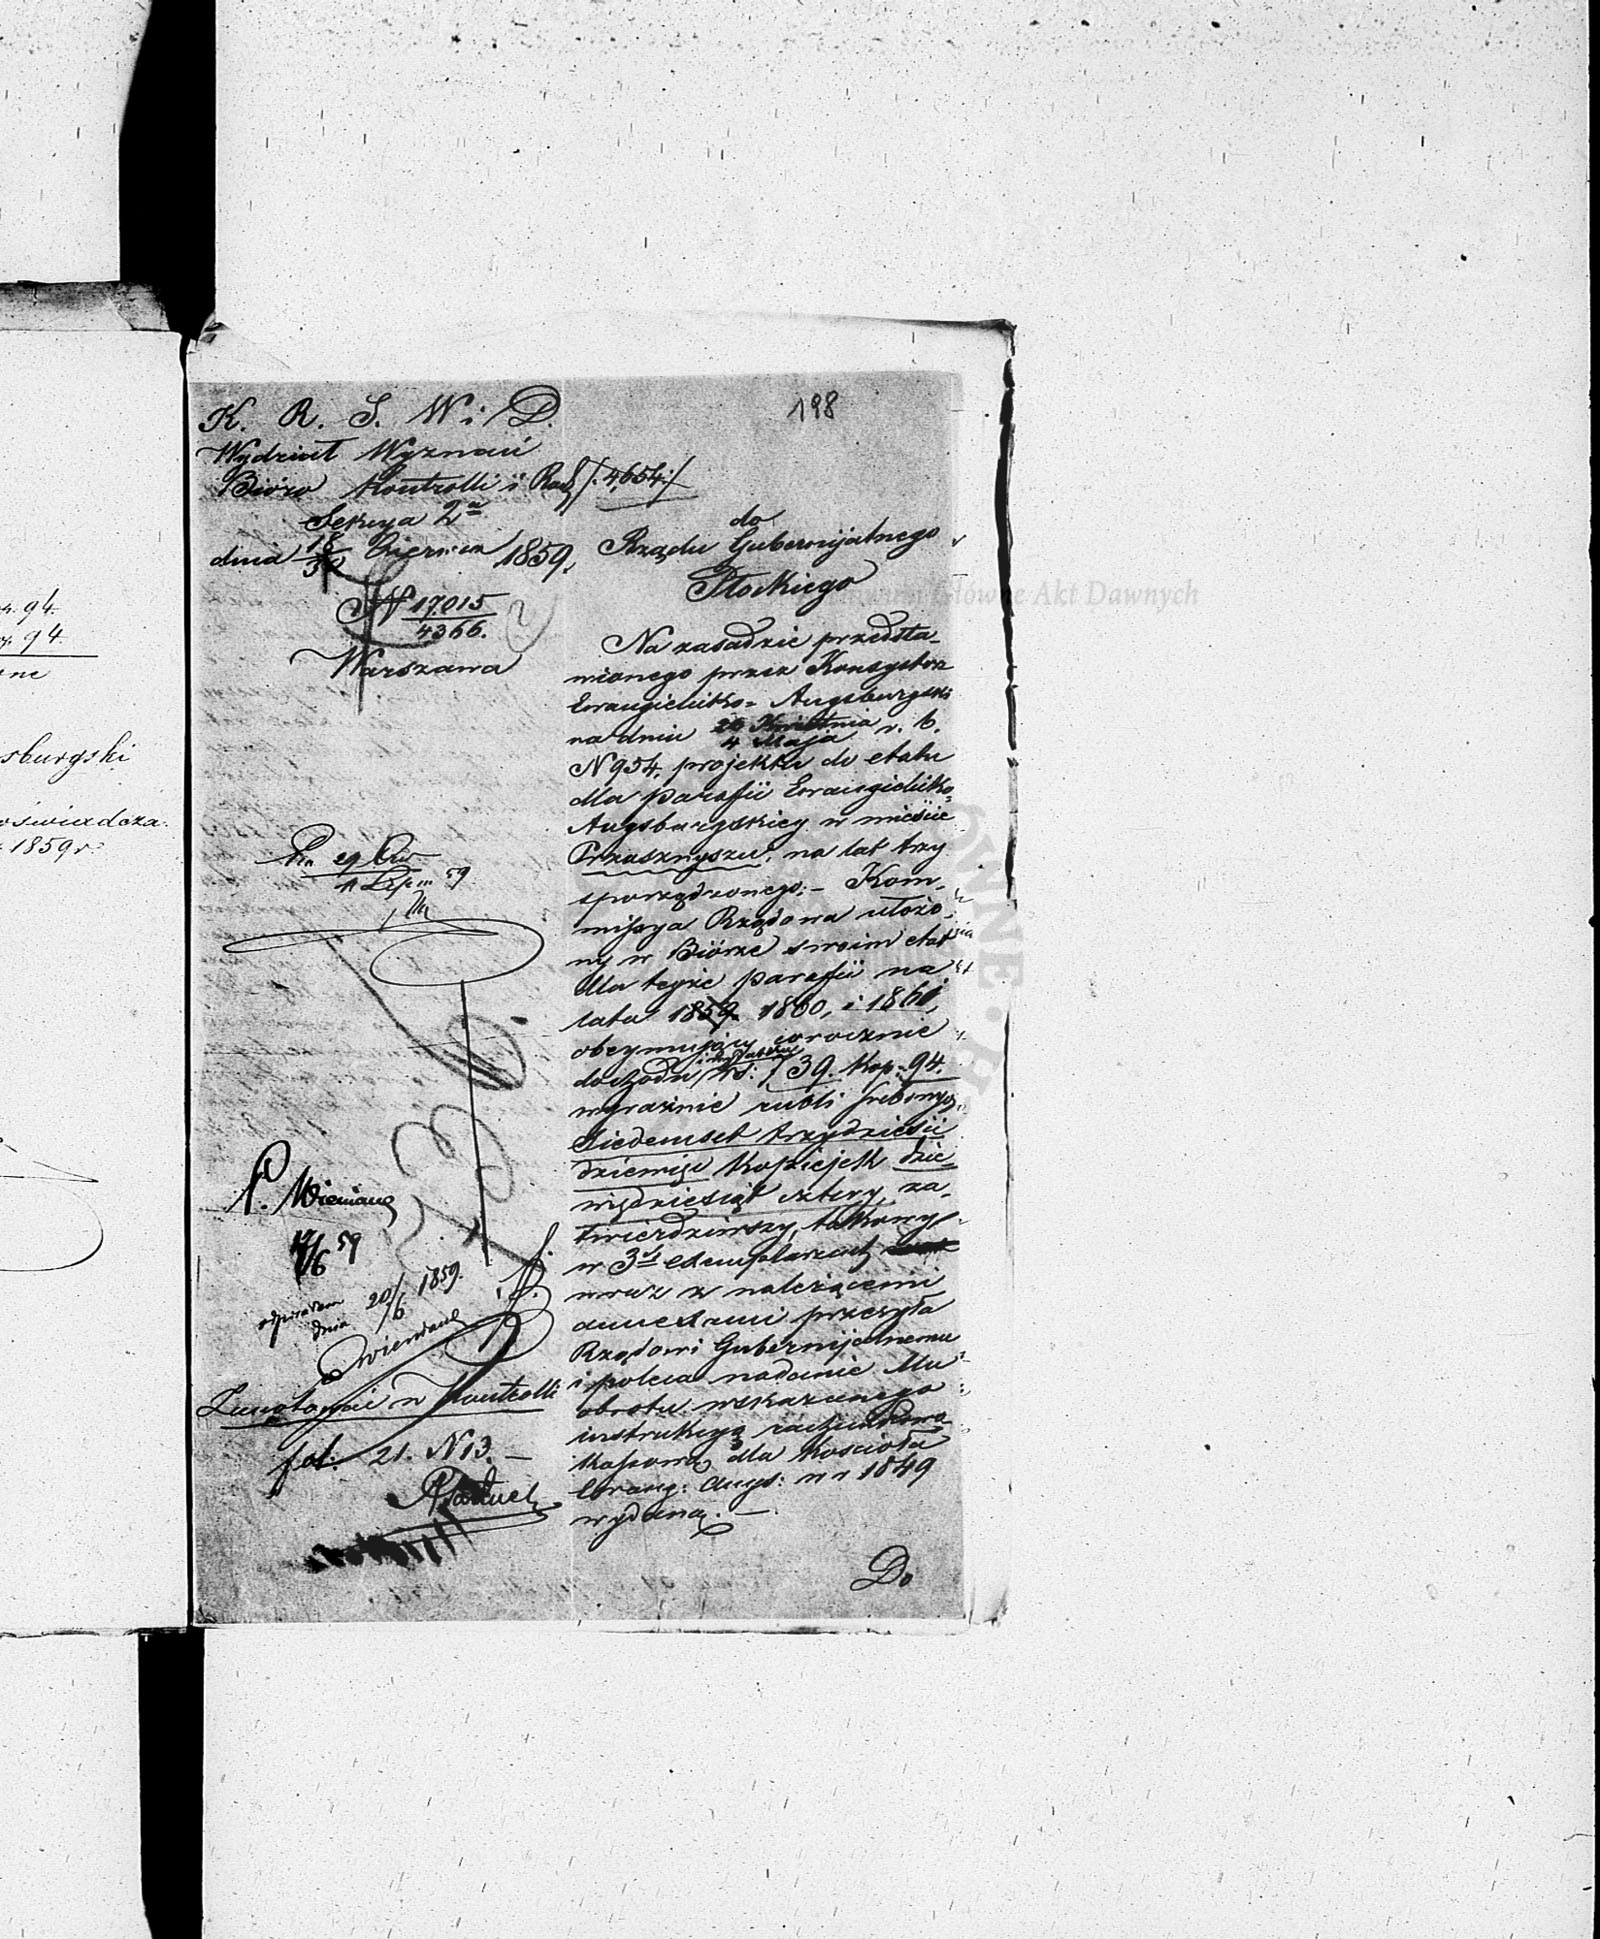 4. 94.
94.
sburgski
oświadcza
1859 r.
198
K. R. S. W. i D.
Wydział Wyznań
Bióro Kontrolli i Rach /:4,654:/
Sekcya 2a
dnia 18/30 Czerwca 1859.
N 17.015
4366.
Warszawa
do
Rządu Gubernijalnego
Płockiego
Na zasadzie przedsta-
wionego przez Konsystorz
Ewangielicko-Augsburgski
na dniu 22 Kwietnia
4 Maja r. b.
N 954, projektu do etatu
dla parafii Ewangielicko-
Augsburgskiey w mieście
Przasznyszu, na lat trzy
sporządzonego; - Kom-
missya Rządowa ułożo-
ny w Biórze swoim etat
dla teyże parafii na
lata 1859. 1860, i 1861,
obeymujący corocznie
dochodu i wydatku rs: 739. kop: 94.
wyraźnie rubli srebrnych
Siedemset trzydzieści
dziewięć kopiejek dzie-
więdziesiąt cztery, za-
twierdziwszy, takowy
w 3ch exemplarzach
wraz z należącemi
annexami przesyła
Rządowi Gubernijalnemu
i poleca nadanie Mu
obrotu wskazanego
instrukcyą rachunkowo
kassową dla Kościoła
Ewang: Augs: w r 1849
wydaną. -
Do
29 Cze
11 Lip 59
P. Wieniawa
/6 59
odpisałem
dnia 20/6 1859.
Wieniawa
Zanotowano w Kontrolli
fol: 21. N 13. -